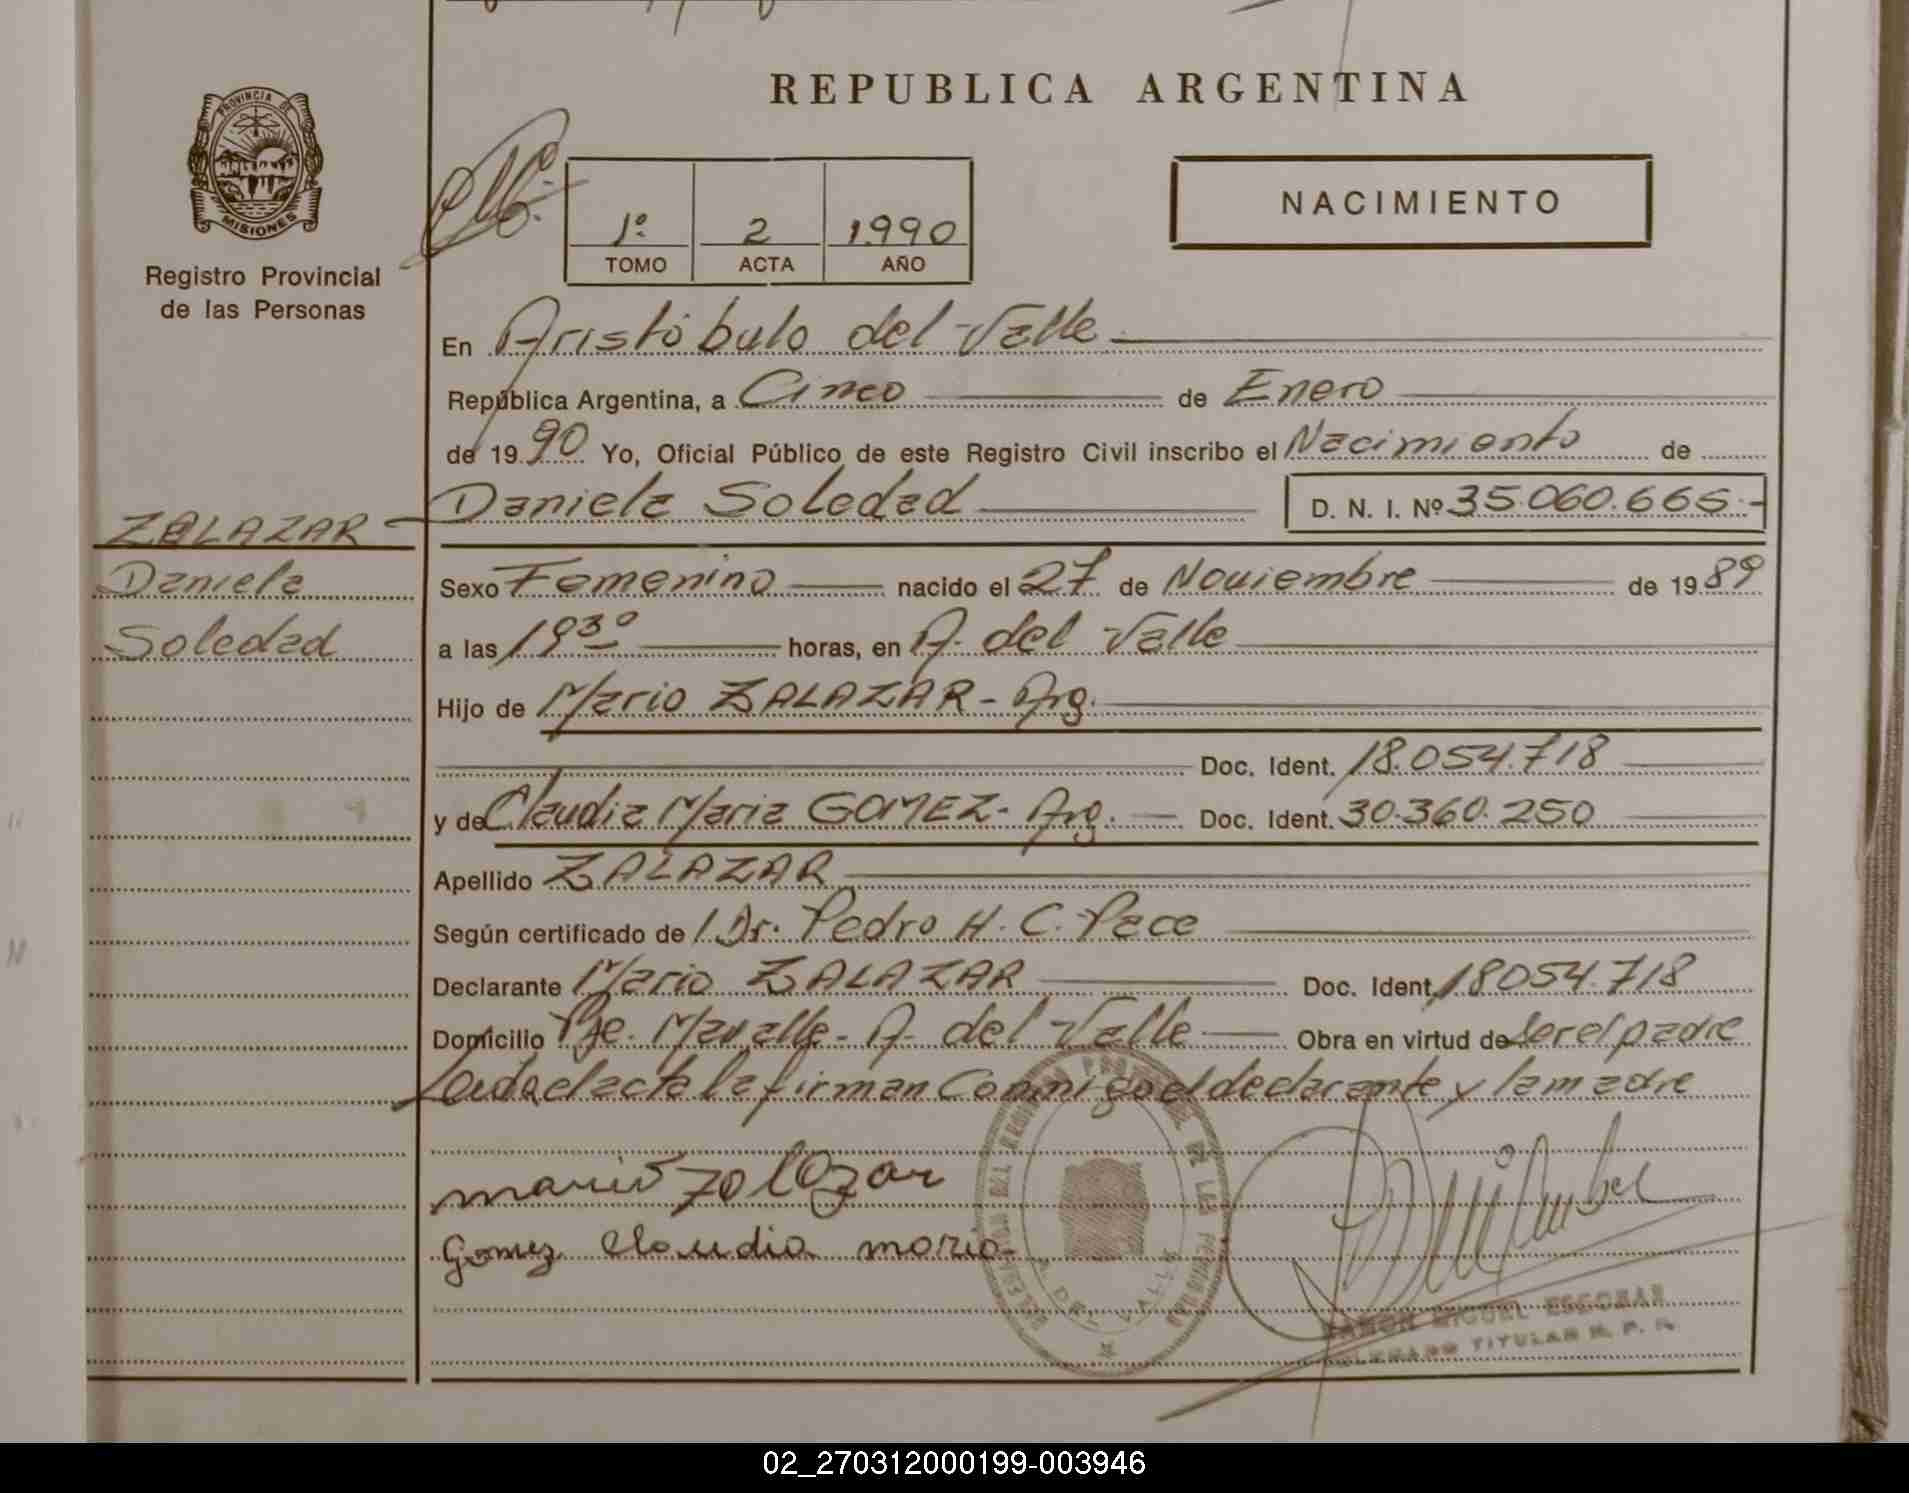 REPUBLICA ARGENTINA
PROVINCIA DE
MISIONES
Registro Provincial
de las Personas
1º 2 1.990
TOMO ACTA AÑO
NACIMIENTO
En Aristóbulo del Valle
República Argentina, a Cinco de Enero
de 19 90 Yo, Oficial Público de este Registro Civil inscribo el Nacimiento de
Daniela Soledad D. N. I. Nº 35.060.665.-
ZALAZAR
Daniela
Soledad
Sexo Femenino nacido el 27 de Noviembre de 19 89
a las 19 30 horas, en A. del Valle
Hijo de Mario ZALAZAR - Arg.
Doc. Ident. 18.054.718
y de Claudia Maria GOMEZ - Arg. Doc. Ident. 30.360.250
Apellido ZALAZAR
Según certificado de Dr. Pedro H. C. Pace
Declarante Mario ZALAZAR Doc. Ident. 18054.718
Domicilio A. del Valle Obra en virtud de ser el padre
el acta la firman Conmigo el declarante y la madre
mario zalazar
Gomez Claudia maria
DEL REGISTRO PROVINCIAL DE LAS PERSONAS
A. DEL VALLE
RAMON MIGUEL ESCOBAR
TITULAR R. P. P.
02_270312000199-003946